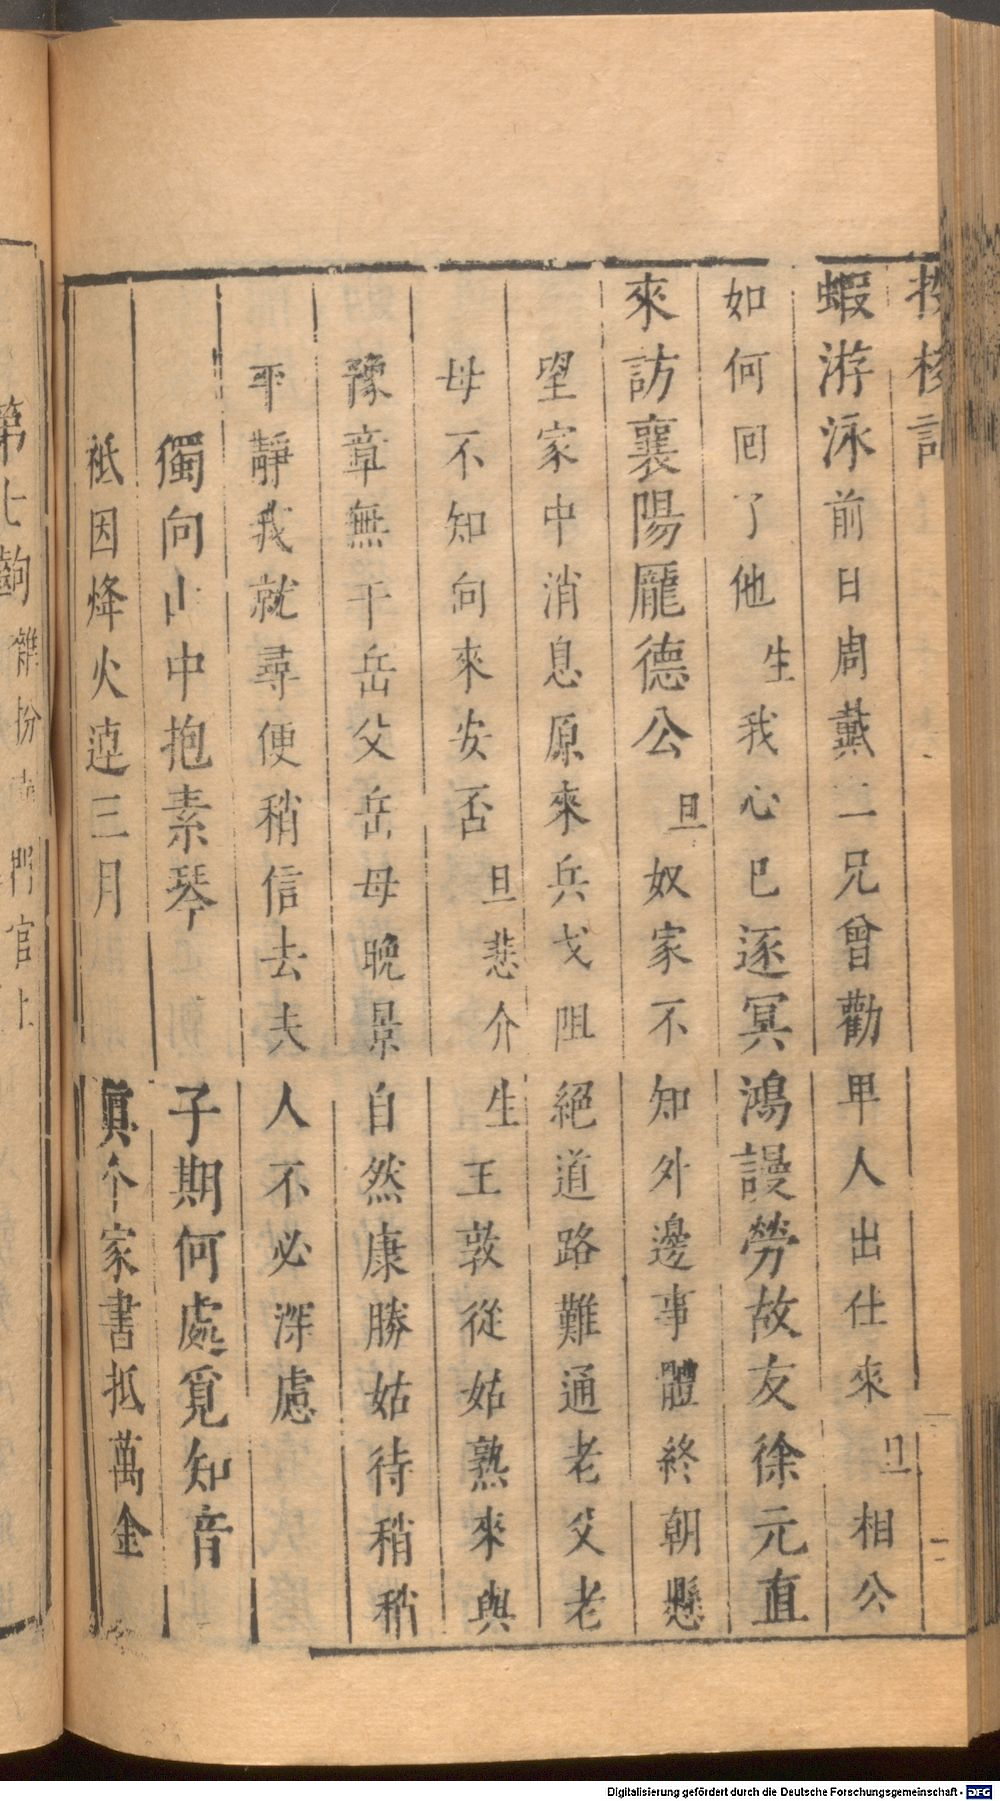 投梭記
蝦游泳前日周戴二兄曾勸甲人出仕來旦相公
如何回了他生我心已逐冥鴻謾勞故友徐元直
來訪襄陽龎德公旦奴家不知外邊事體終朝懸
望家中消息原來兵戈阻絕道路難通老父老
母不知向來安否旦悲介生王敦從姑熟來與
豫章無干岳父岳母晚景自然康勝姑待稍稍
平靜我就尋便稍信去夫人不必深慮
獨向山中抱素琴 子期何處覓知音
祗因烽火連三月 眞个家書抵萬金
第七齣 雜扮 門官上
Digitalisierung gefördert durch die Deutsche Forschungsgemeinschaft - DFG